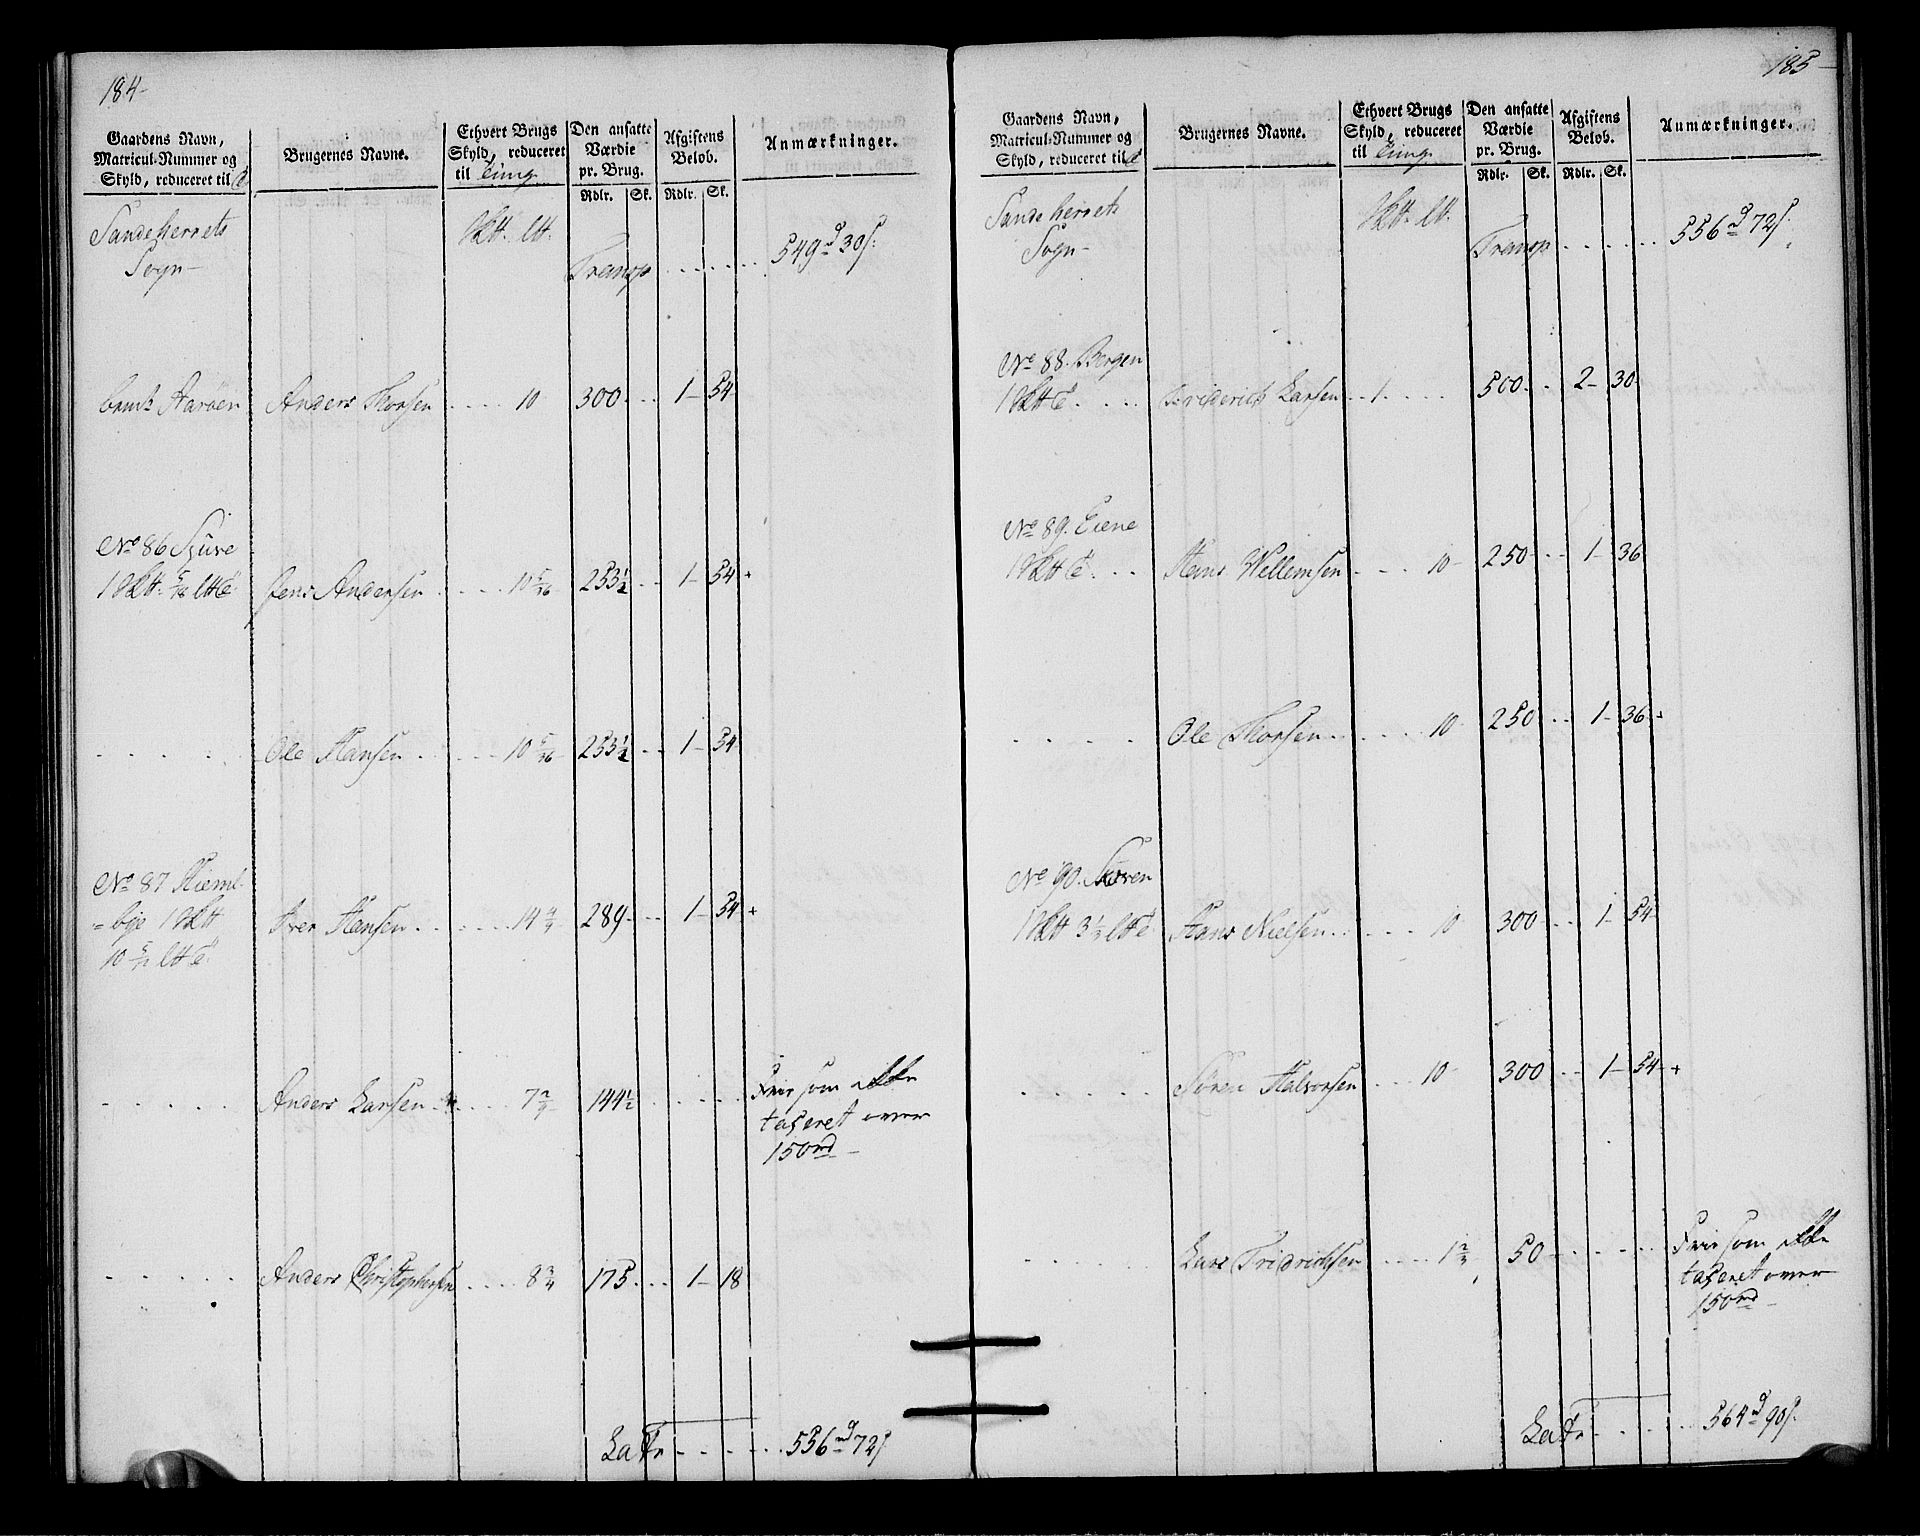 184
Gaardens Navn, Matricul-Nummer og Skyld, reduceret til
Brugernes Navne.
Ethvert Brugs Skyld, reduceret til Tung
Den ansatte Værdie pr. Brug.
Afgiftens Beløb.
Anmærkninger.
Rdlr. Sk. Rdlr. Sk.
Sandeherrets
Sogn
Transp . . . . . . 549 rd 30 s:
Aarøen Anders Thorsen . . . . 10 300 . . . 1 - 54
No 86 Gjure
Jens Andersen . . . . 10 5/16 253 1/2 . . 1 - 54 +
. . . . . Ole Hansen . . . . 10 5/16 253 1/2 . . 1 - 54
No 87 Hieml-
= bye 1
10 5/7
Iver Hansen . . . . . 14 4/7 289 . . . 1 - 54 +
. . . . . Anders Larsen . . . 7 2/7 144 1/2 . . . . . Frie som ikke
taxeret over
150 rd
. . . . . Anders Christophersen . . . 8 3/4 175 . . . 1 - 18
LaTr . . . . . 556 rd 72 s
185
Gaardens Navn, Matricul-Nummer og Skyld, reduceret til
Brugernes Navne.
Ethvert Brugs Skyld, reduceret til Tung
Den ansatte Værdie pr. Brug.
Afgiftens Beløb.
Anmærkninger.
Rdlr. Sk. Rdlr. Sk.
Sandeherrets
Sogn
Transp . . . . . . 556 rd 72 s
No 88. Bergen
Friderich Larsen . . 1 . . . . 500 . . 2 - 30
No 89. Eiene
Hans Wellemsen . . . . 10 250 . . 1 - 36
. . . . Ole Thorsen . . . . . 10 250 . . 1 - 36
No 90. Skoven
Hans Nielsen . . . . . 10 300 . . 1 - 54
. . . . . Søren Halvorsen . . . 10 300 . . 1 - 54 +
. . . . . Lars Fridrichsen . . . . 1 2/4 50 . . . . . Frie som ikke
taxeret over
150 rd
LaTr . . . . . 564 rd 90 s.